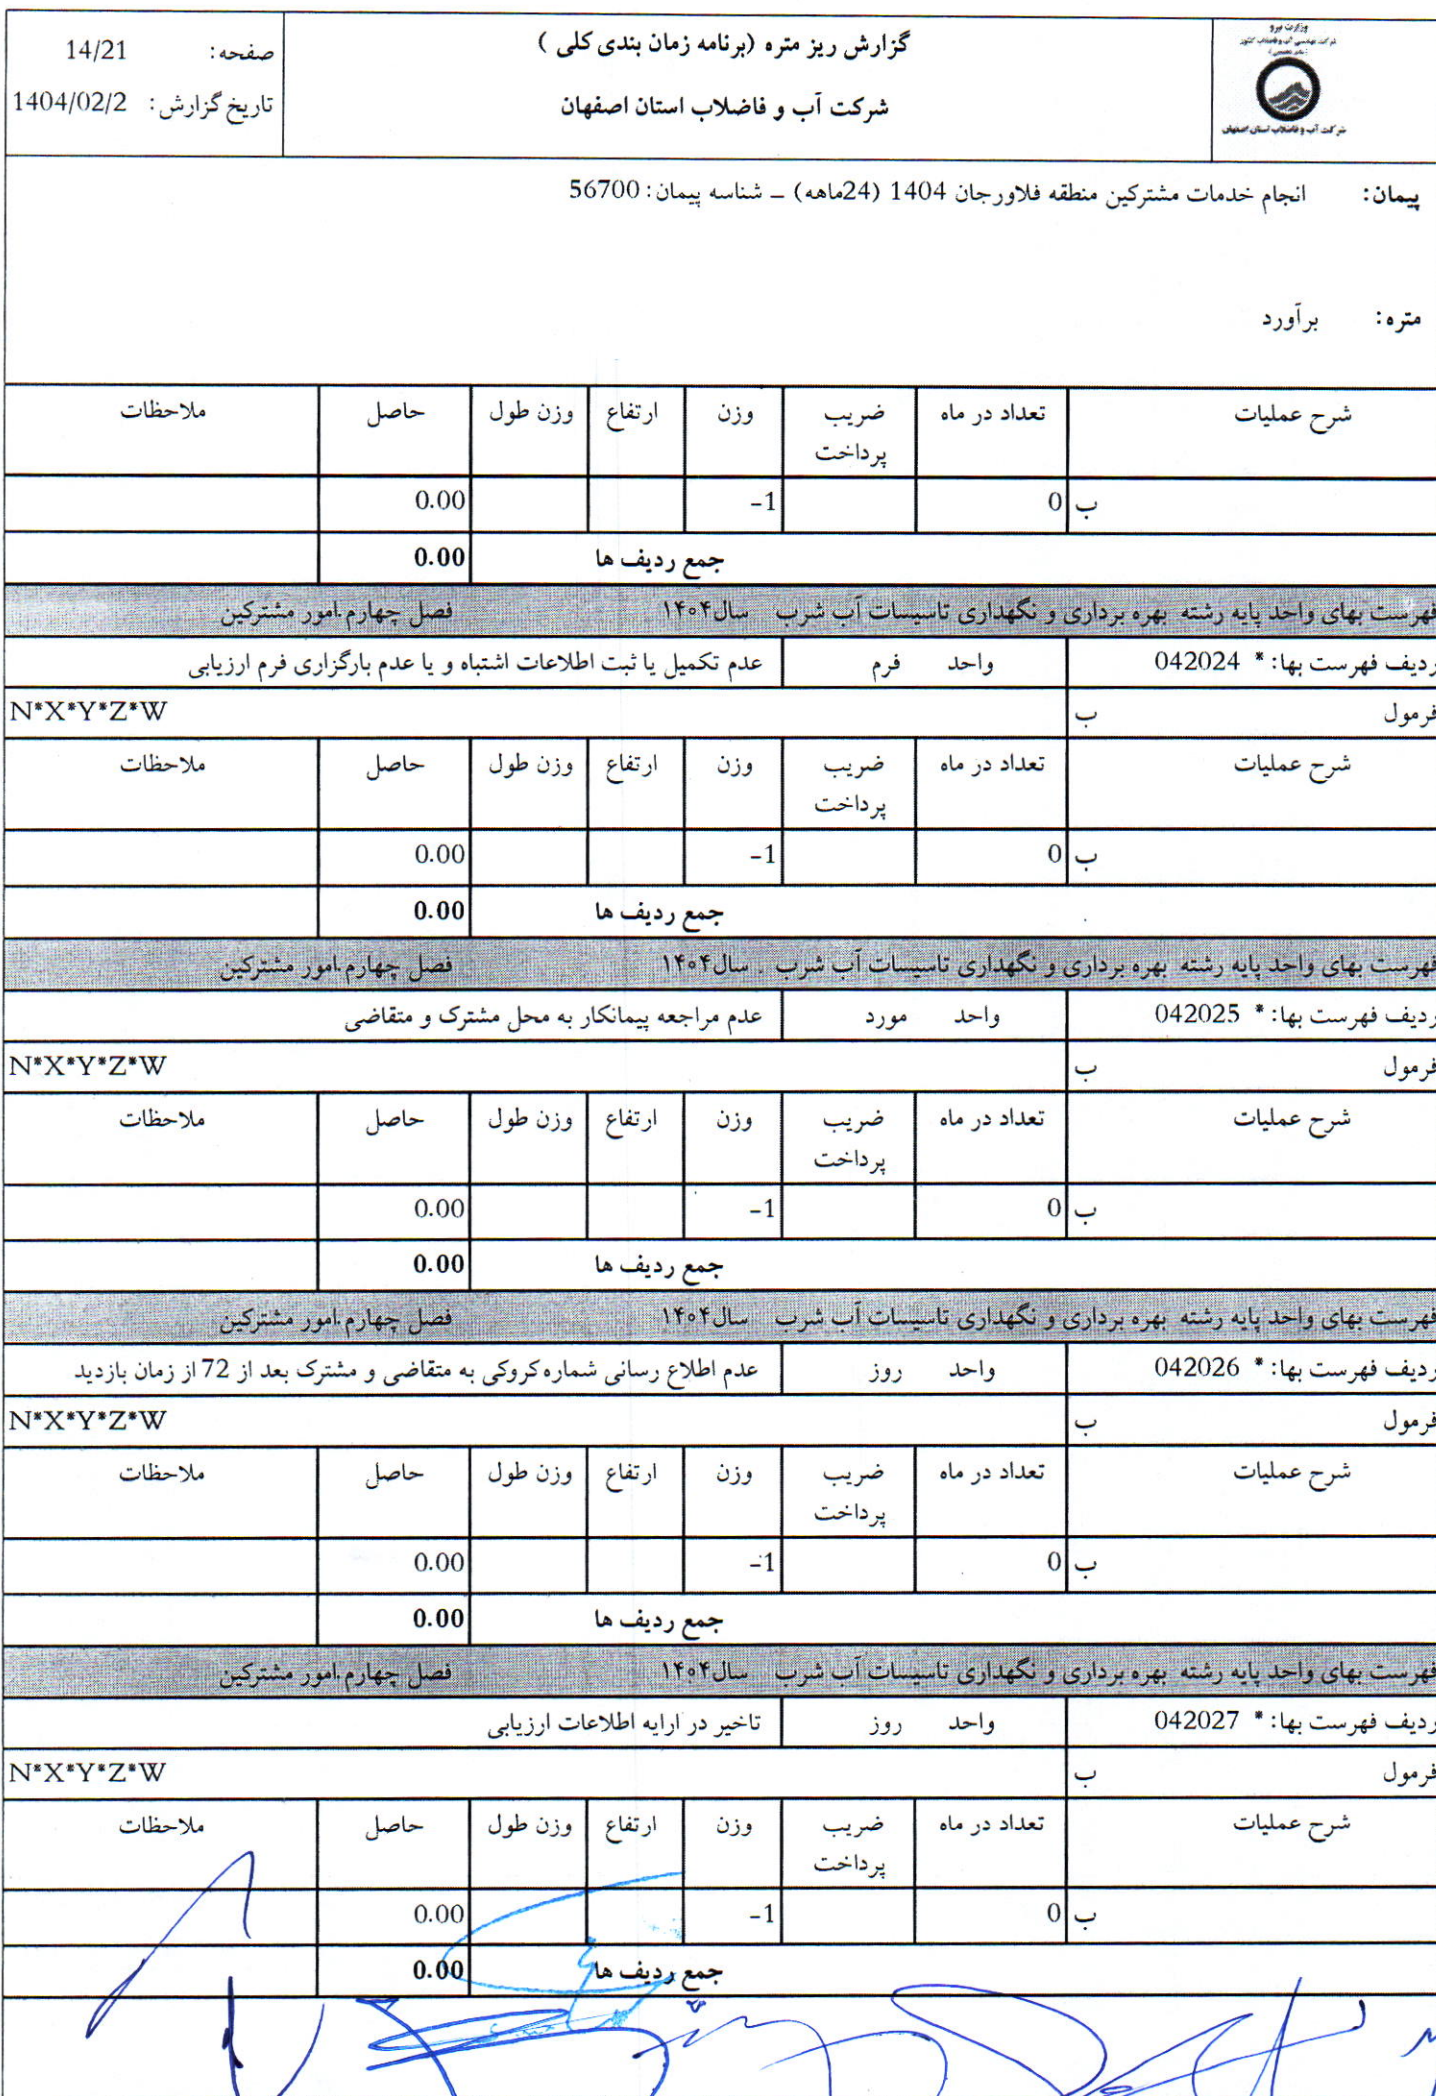 وزارت نیرو
شرکت مهندسی آب و فاضلاب کشور
شرکت آب و فاضلاب استان اصفهان
گزارش ریز متره (برنامه زمان بندی کلی )
شرکت آب و فاضلاب استان اصفهان
صفحه: 14/21
تاریخ گزارش: 1404/02/2
پیمان: انجام خدمات مشترکین منطقه فلاورجان 1404 (24ماهه) – شناسه پیمان: 56700
متره: برآورد
شرح عملیات تعداد در ماه ضریب پرداخت وزن ارتفاع وزن طول حاصل ملاحظات
ب 0 -1 0.00
جمع ردیف ها 0.00
فهرست بهای واحد پایه رشته بهره برداری و نگهداری تاسیسات آب شرب سال۱۴۰۴ فصل چهارم.امور مشترکین
ردیف فهرست بها: * 042024 واحد فرم عدم تکمیل یا ثبت اطلاعات اشتباه و یا عدم بارگزاری فرم ارزیابی
فرمول ب N*X*Y*Z*W
شرح عملیات تعداد در ماه ضریب پرداخت وزن ارتفاع وزن طول حاصل ملاحظات
ب 0 -1 0.00
جمع ردیف ها 0.00
فهرست بهای واحد پایه رشته بهره برداری و نگهداری تاسیسات آب شرب سال۱۴۰۴ فصل چهارم.امور مشترکین
ردیف فهرست بها: * 042025 واحد مورد عدم مراجعه پیمانکار به محل مشترک و متقاضی
فرمول ب N*X*Y*Z*W
شرح عملیات تعداد در ماه ضریب پرداخت وزن ارتفاع وزن طول حاصل ملاحظات
ب 0 -1 0.00
جمع ردیف ها 0.00
فهرست بهای واحد پایه رشته بهره برداری و نگهداری تاسیسات آب شرب سال۱۴۰۴ فصل چهارم.امور مشترکین
ردیف فهرست بها: * 042026 واحد روز عدم اطلاع رسانی شماره کروکی به متقاضی و مشترک بعد از 72 از زمان بازدید
فرمول ب N*X*Y*Z*W
شرح عملیات تعداد در ماه ضریب پرداخت وزن ارتفاع وزن طول حاصل ملاحظات
ب 0 -1 0.00
جمع ردیف ها 0.00
فهرست بهای واحد پایه رشته بهره برداری و نگهداری تاسیسات آب شرب سال۱۴۰۴ فصل چهارم.امور مشترکین
ردیف فهرست بها: * 042027 واحد روز تاخیر در ارایه اطلاعات ارزیابی
فرمول ب N*X*Y*Z*W
شرح عملیات تعداد در ماه ضریب پرداخت وزن ارتفاع وزن طول حاصل ملاحظات
ب 0 -1 0.00
جمع ردیف ها 0.00